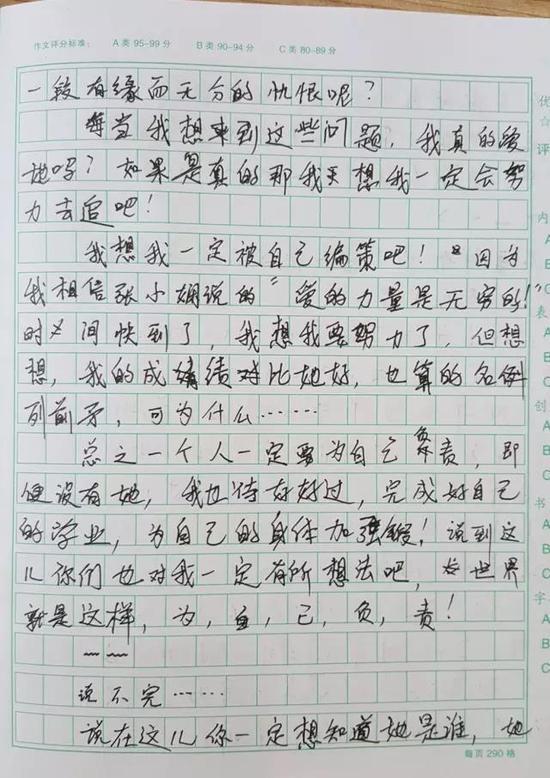 作文评分标准： A类 95-99分 B类 90-94分 C类 80-89分
一段有缘而无分的仇恨呢？
每当我想来到这些问题，我真的爱
她吗？如果是真的那我天想我一定会努
力去追吧！
我想我一定被自己编策吧！因为
我相信张小娴说的"爱的力量是无穷的！"
时间快到了，我想我要努力了，但想
想，我的成绩对比她好，也算的名例
列前矛，可为什么……
总之一个人一定要为自己负责，即
便没有她，我也待好好过，完成好自己
的学业，为自己的身体加强锻！说到这
儿你们也对我一定有所想法吧，世界
就是这样，为，自，己，负，责！
~~
说不完……
说在这儿你一定想知道她是谁，她
每页290格
优
☆
评
内
A
B
C
表
A
B
C
创
A
B
C
书
A
字
A
B
C